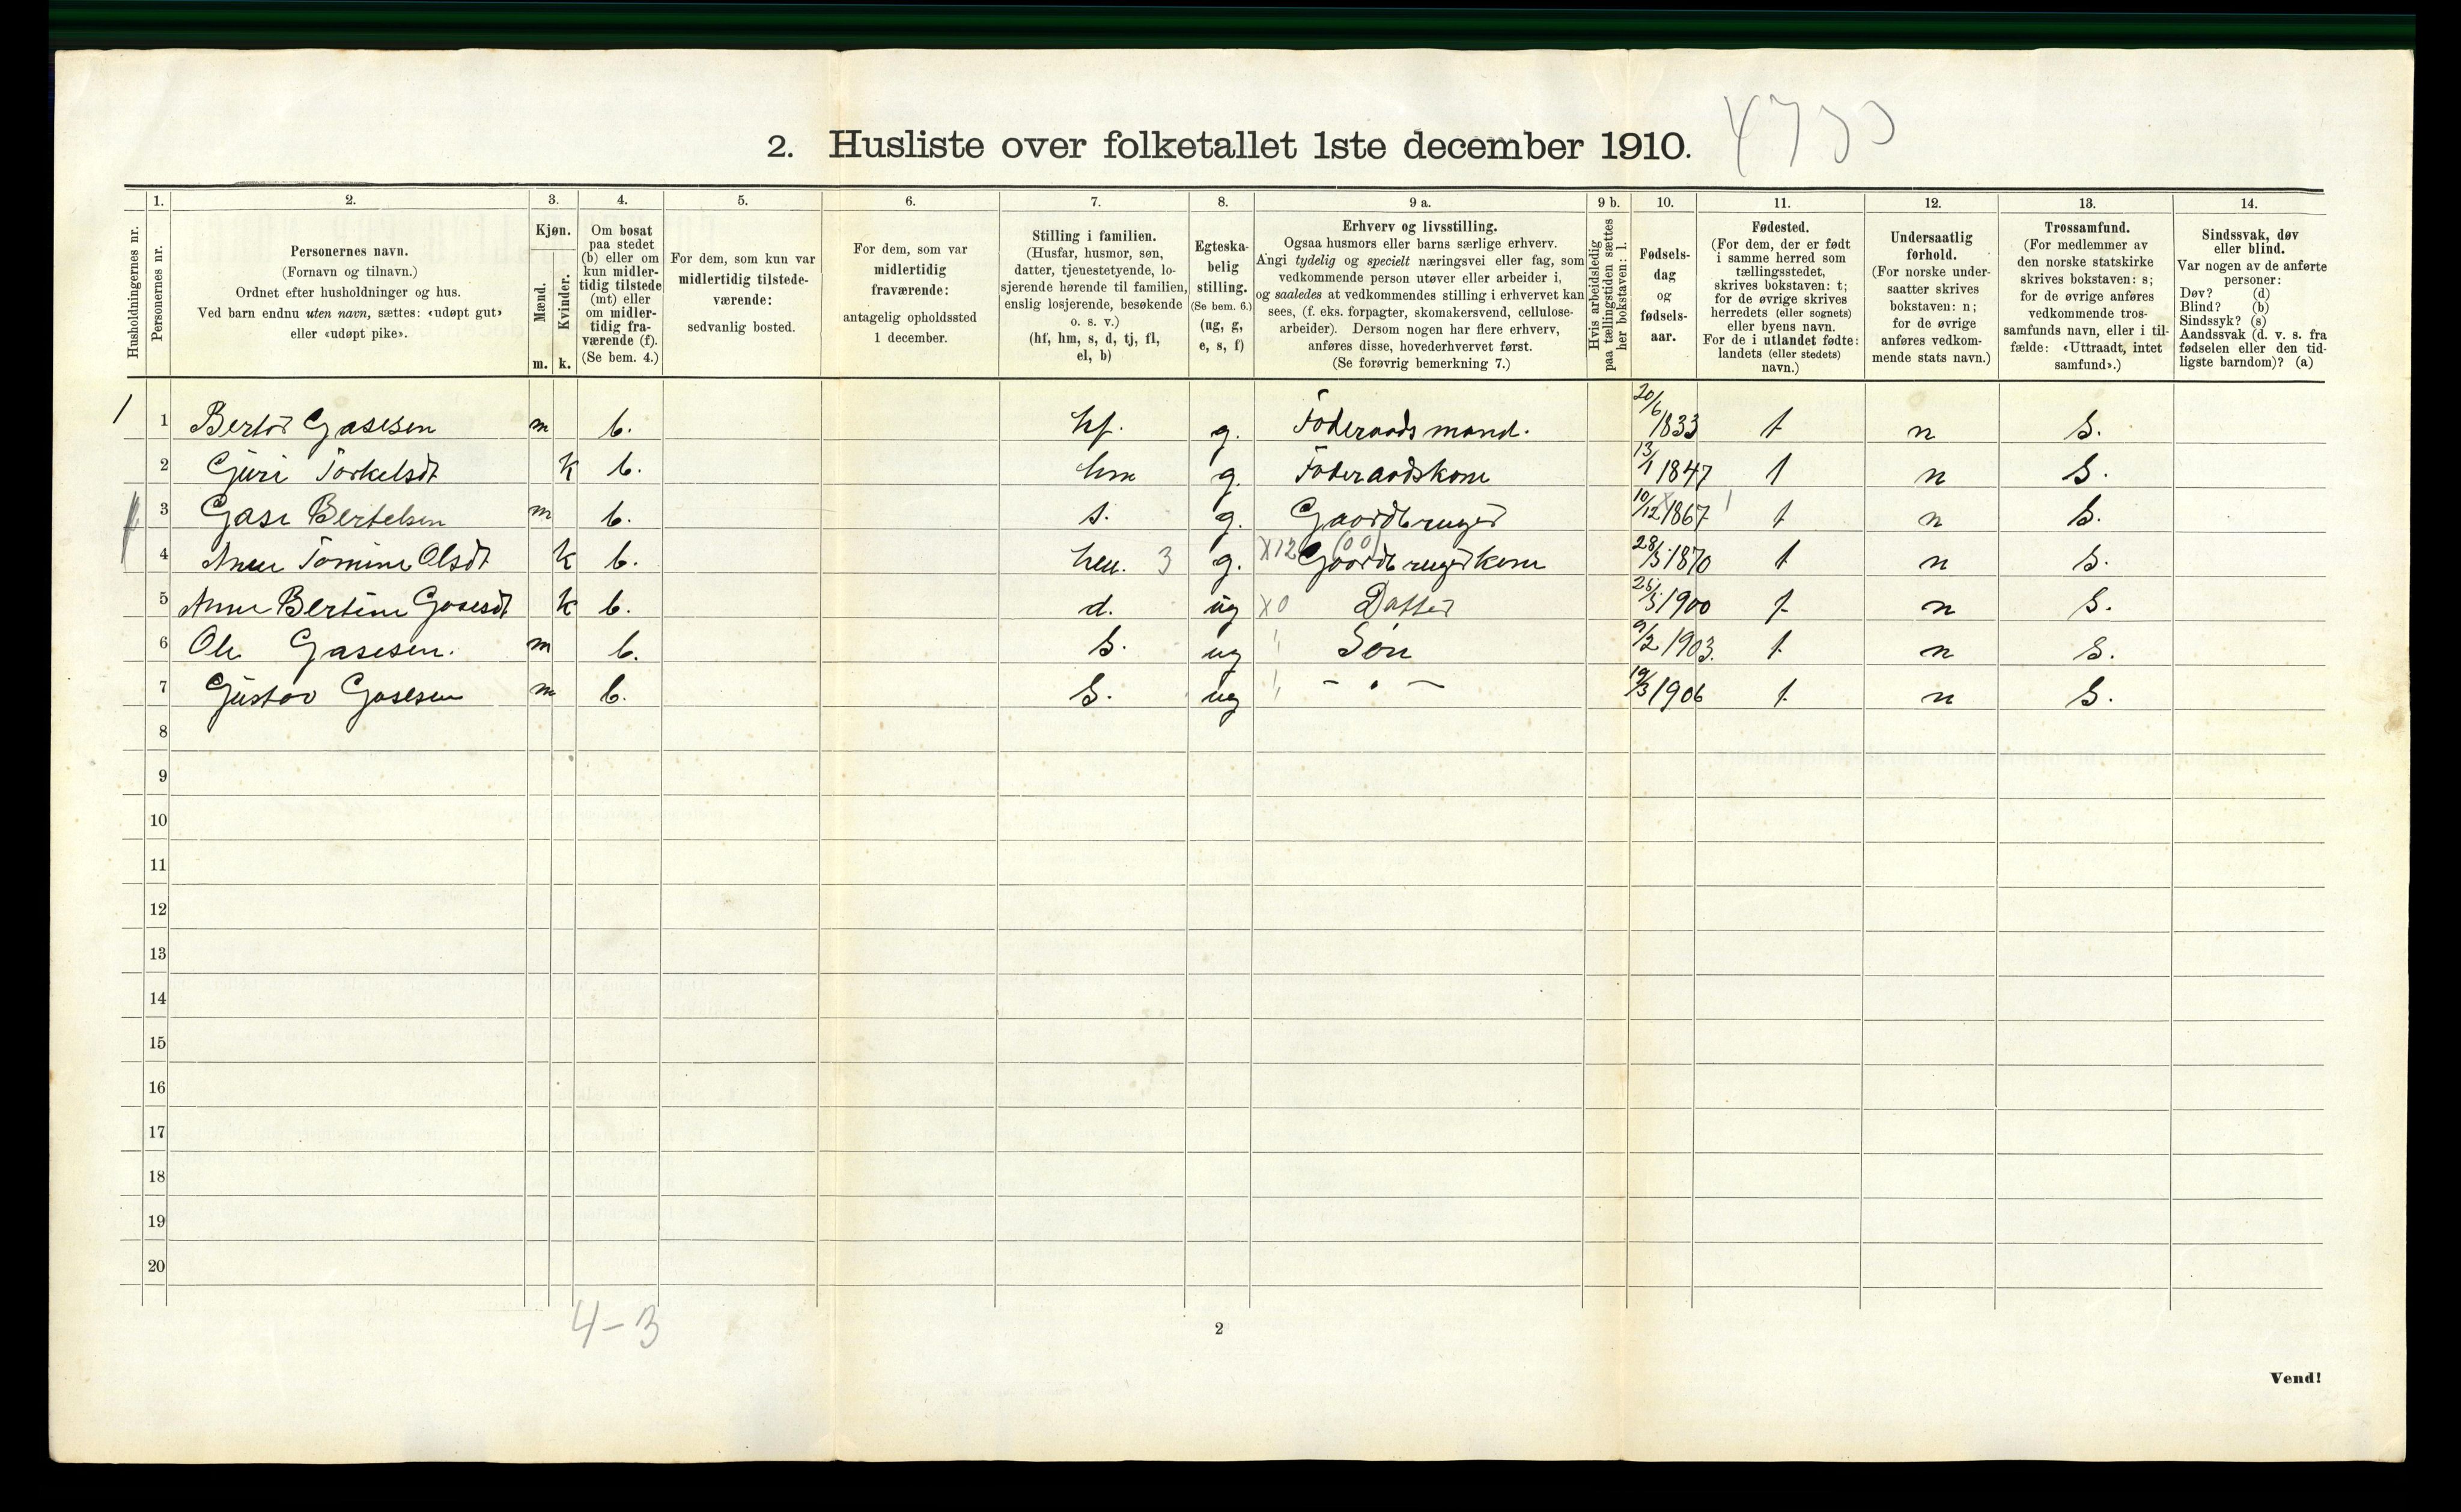 2. Husliste over folketallet 1ste december 1910.
Husholdningernes nr.
1.
Personernes nr.
2.
Personernes navn.
(Fornavn og tilnavn.)
Ordnet efter husholdninger og hus.
Ved barn endnu uten navn, sættes: «udøpt gut»
eller «udøpt pike».
3.
Kjøn.
Mænd.
Kvinder.
m. k.
4.
Om bosat
paa stedet
(b) eller om
kun midler-
tidig tilstede
(mt) eller
om midler-
tidig fra-
værende (f).
(Se bem. 4.)
5.
For dem, som kun var
midlertidig tilstede-
værende:
sedvanlig bosted.
6.
For dem, som var
midlertidig
fraværende:
antagelig opholdssted
1 december.
7.
Stilling i familien.
(Husfar, husmor, søn,
datter, tjenestetyende, lo-
sjerende hørende til familien,
enslig losjerende, besøkende
o. s. v.)
(hf, hm, s, d, tj, fl,
el, b)
8.
Egteska-
belig
stilling.
(Se bem. 6.)
(ug, g,
e, s, f)
9 a.
Erhverv og livsstilling.
Ogsaa husmors eller barns særlige erhverv.
Angi tydelig og specielt næringsvei eller fag, som
vedkommende person utøver eller arbeider i,
og saaledes at vedkommendes stilling i erhvervet kan
sees, (f. eks. forpagter, skomakersvend, cellulose-
arbeider). Dersom nogen har flere erhverv,
anføres disse, hovederhvervet først.
(Se forøvrig bemerkning 7.)
9 b.
Hvis arbeidsledig
paa tællingstiden sættes
her bokstaven: l.
10.
Fødsels-
dag
og
fødsels-
aar.
11.
Fødested.
(For dem, der er født
i samme herred som
tællingsstedet,
skrives bokstaven: t;
for de øvrige skrives
herredets (eller sognets)
eller byens navn.
For de i utlandet fødte:
landets (eller stedets)
navn.)
12.
Undersaatlig
forhold.
(For norske under-
saatter skrives
bokstaven: n;
for de øvrige
anføres vedkom-
mende stats navn.)
13.
Trossamfund.
(For medlemmer av
den norske statskirke
skrives bokstaven: s;
for de øvrige anføres
vedkommende tros-
samfunds navn, eller i til-
fælde: «Uttraadt, intet
samfund».)
14.
Sindssvak, døv
eller blind.
Var nogen av de anførte
personer:
Døv? (d)
Blind? (b)
Sindssyk? (s)
Aandssvak (d. v. s. fra
fødselen eller den tid-
ligste barndom)? (a)
1 1 Bertor Gasesen m b. hf. g. Föderaadsmand. 20/6 1833 t n S.
2 Guri Torkelsdt k b. hm g. Föderaadskone 13/1 1847 t n S.
3 Gase Bertelsen m b. s. g. Gaardbruger 10/12 1867 t n S.
4 Anne Tomine Olsdt k b. hm. 3 g. X12 (00) Gaardbrugerkone 28/3 1870 t n S.
5 Anne Bertine Gasesdt k b. d. ug X0 Datter 1900 t n S.
6 Ole Gasesen. m b. S. ug Søn 9/2 1903. t n S.
7 Gustav Gasesen m b. S. ug - " - 19/3 1906 t n S.
8
9
10
11
12
13
14
15
16
17
18
19
20
4-3
2
Vend!